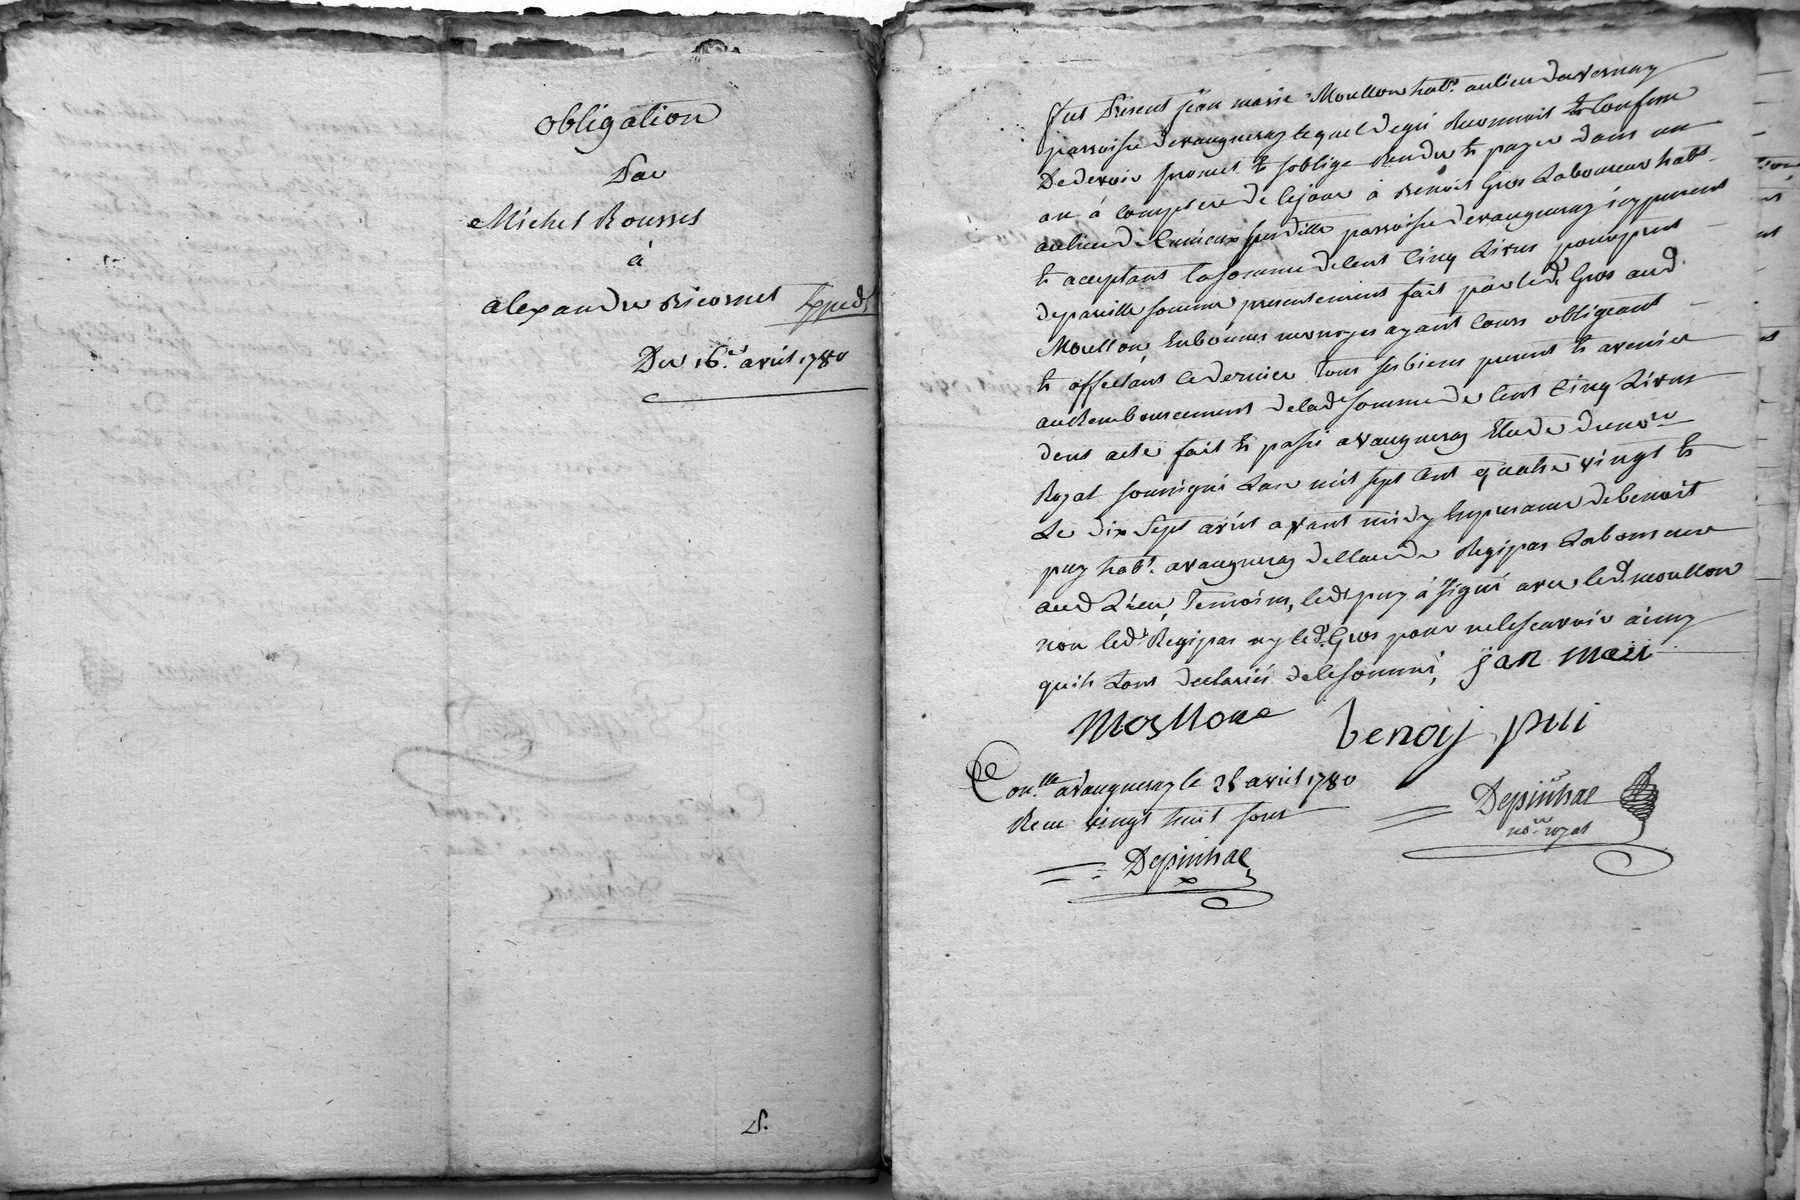 obligation
Par
Michel Rousset
à
alexandre Bicornet Expedt
Du 16.e avril 1780
Fut Présent jean marie Moullon habt. au lieu du vernay
parroisse de vaugneray lequel degré Reconnoit et Confesse
De devoir promet et soblige Rendre et payer dans un
an à Compter de Ce jour à Benoit Gros Laboureur habt
au lieu de parroisse de vaugneray icy present
et aceptant la somme de Cent Cinq Livres pour prest
de pareille somme presentement fait par led. Gros aud.
Moullon, En bonnes monnoyes ayant Cours obligeant
et affectant Ce dernier tous ses biens present et avenir
au Remboursement de lade somme de Cent Cinq Livres
dont acte fait et passé a vaugneray Etude du nore
Royal soussigné Lan mil sept Cent quatre vingt et
Le dix sept avril avant midy En presance de benoit
puy habt. a vaugneray de Claude Regipas Laboureur
aud Lieu, Temoins, ledt puy à signé avec led. moullon
non led. Regipas ny led. Gros pour ne le scavoir ainsy
quils Lont declarés de ce sommés, jan maii
Mosllone benoij pui
Con.lle a vaugneray le 28 avril 1780
Recu vingt huit sous
Depinhac
Depinhac
nore royal
S.